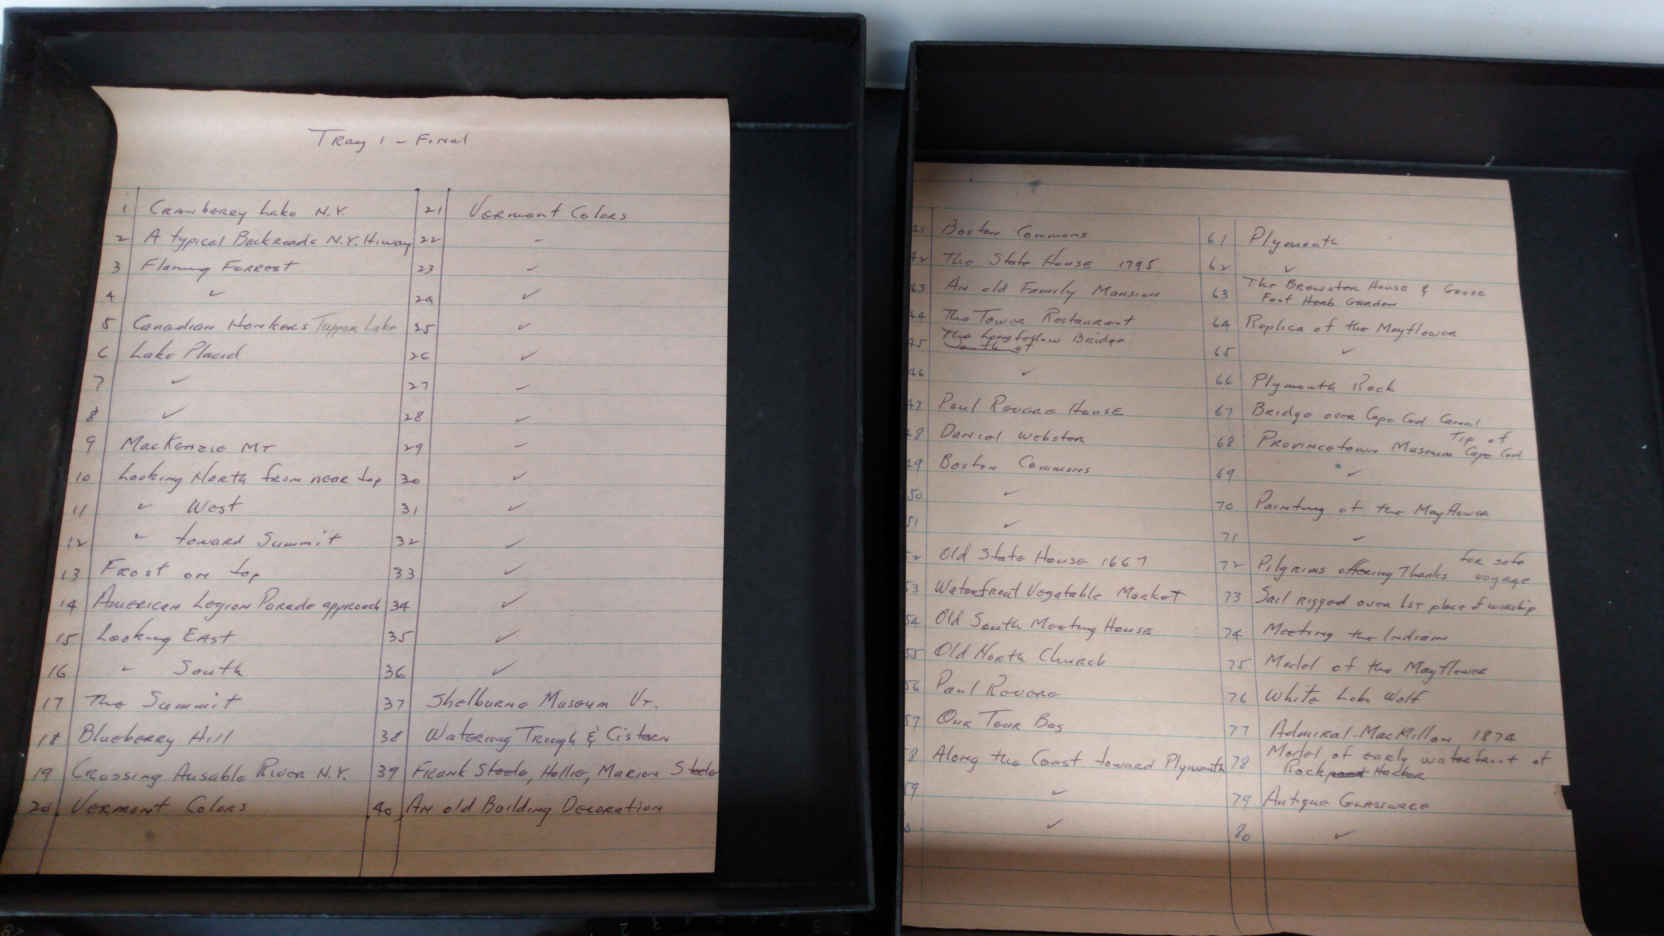 Tray 1 - Final
1 Cranberry Lake N.Y.
2 A typical Backroads N.Y. Hiway
3 Flaming Forrest
4 "
5 Canadian Honkers Tupper Lake
6 Lake Placid
7 "
8 "
9 MacKenzie MT
10 Looking North from near top
11 " West
12 " toward Summit
13 Frost on top
14 American Legion Parade approach
15 Looking East
16 " South
17 The Summit
18 Blueberry Hill
19 Crossing Ausable River N.Y.
20 Vermont Colors
21 Vermont Colors
22 "
23 "
24 "
25 "
26 "
27 "
28 "
29 "
30 "
31 "
32 "
33 "
34 "
35 "
36 "
37 Shelburne Museum Vt.
38 Watering Trough & Cistern
39 Frank Steele, Hollis, Marion Steele
40 An old Building Decoration
41 Boston Commons
42 The State House 1795
43 An old Family Mansion
44 The Tower Restaurant
45 The Longfellow Bridge
46 "
47 Paul Revere House
48 Daniel Webster
49 Boston Commons
50 "
51 "
52 Old State House 1667
53 Waterfront Vegetable Market
54 Old South Meeting House
55 Old North Church
56 Paul Revere
57 Our Tour Bus
58 Along the Coast toward Plymouth
59 "
60 "
61 Plymouth
62 "
63 The Brewster House & Goose
Foot Herb Garden
64 Replica of the Mayflower
65 "
66 Plymouth Rock
67 Bridge over Cape Cod Canal
68 Provincetown Museum Tip of
Cape Cod
69 "
70 Painting of the Mayflower
71 "
72 Pilgrims offering Thanks for safe
voyage
73 Sail rigged over 1st place of worship
74 Meeting the Indians
75 Model of the Mayflower
76 White Wolf
77 Admiral MacMillan 1874
78 Model of early waterfront of
Rockport Harbor
79 Antique Glassware
80 "